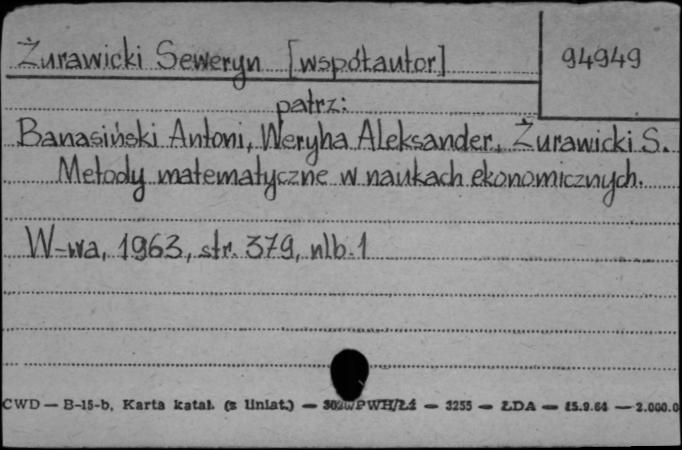 Żurawicki Seweryn [współautor] 94949
patrz:
Banasiński Antoni, Weryha Aleksander, Żurawicki S.
Metody matematyczne w naukach ekonomicznych.
W-wa, 1963, str. 379, nlb. 1
CWD — B-15-b, Karta katal. (z liniat.) — PWH/Łź — 3255 — ŁDA — 15.9.64 — 2.000.0